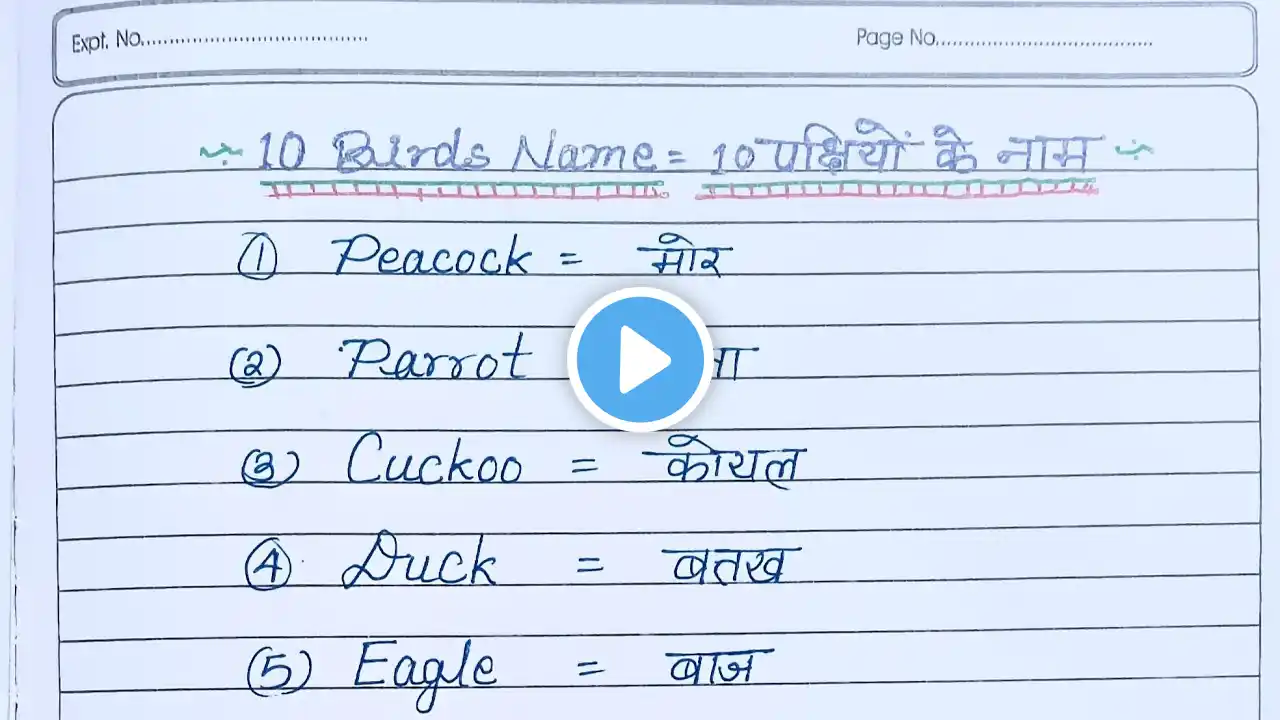 Expt. No.....................................
Page No.....................................
10 Birds Name = 10 पक्षियों के नाम
① Peacock = मोर
(2) Parrot
(3) Cuckoo = कोयल
④ Duck = बतख
(5) Eagle = बाज